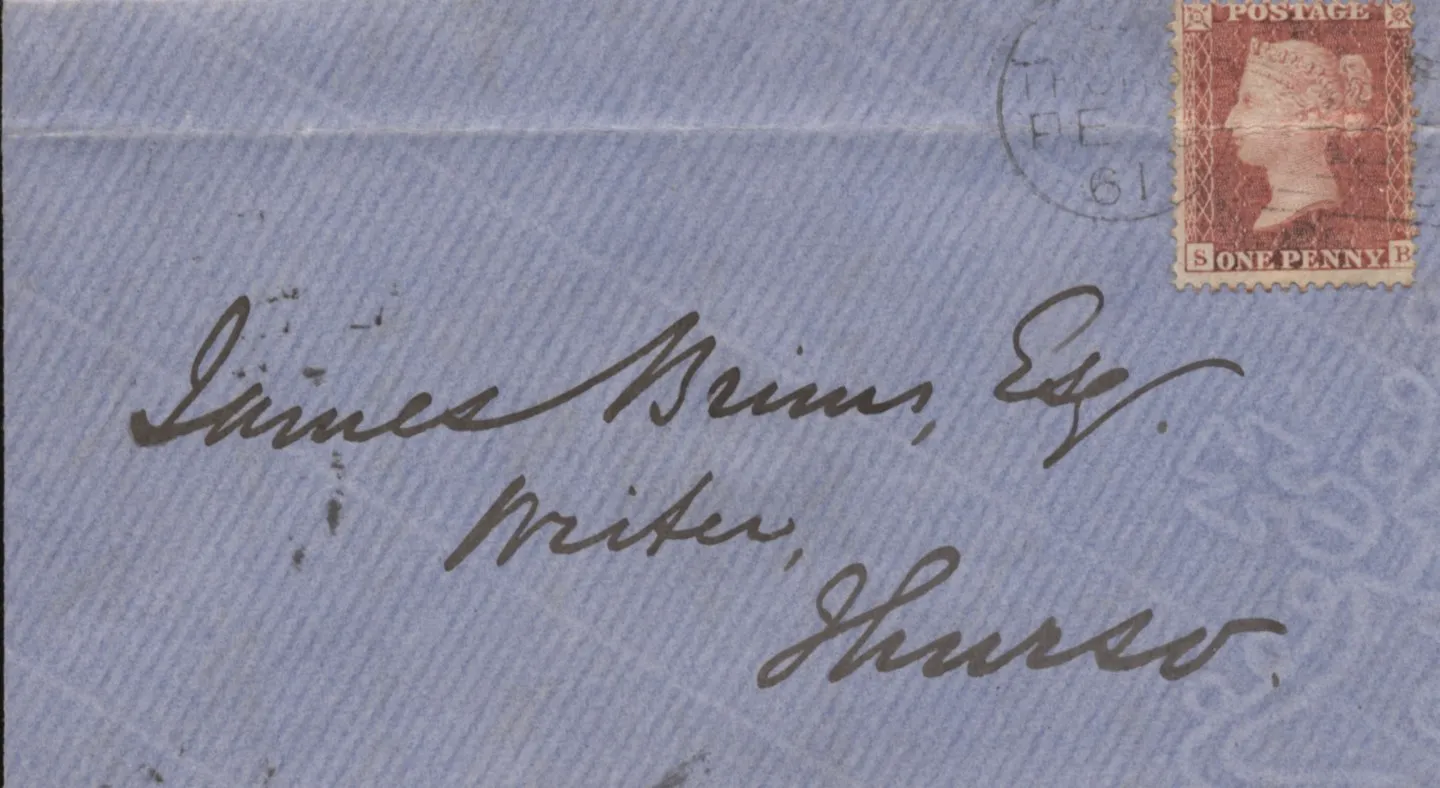 POSTAGE
FE
61
S ONE PENNY. B
James Brims, Esq.
Writer,
Thurso.